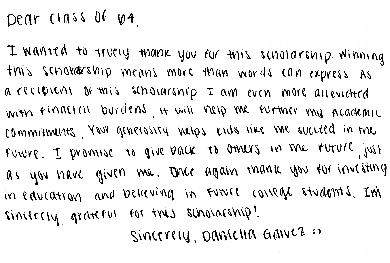 Dear Class of 64,
I wanted to truely thank you for this scholarship. Winning
this scholarship means more than words can express. As
a recipient of this scholarship I am even more alleviated
with finacial burdens, it will help me further my academic
commitments. Your generosity helps kids like me succeed in the
future. I promise to give back to others in the future, just
as you have given me. Once again thank you for investing
in education and believing in future college students. I'm
sincerely grateful for this scholarship!
Sincerely, Daniella Galvez :)